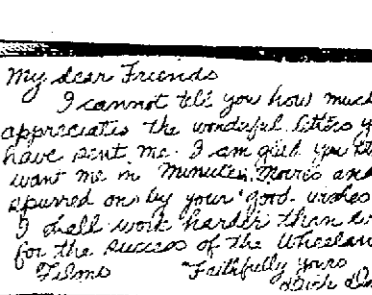 My dear Friends
I cannot tell you how much
appreciates the wonderful letters y
have sent me. I am glad you
want me in Minute Movies and
spurred on by your good wishes
I shall work harder than
for the success of the Wheelan
Films
Faithfully yours
Dick